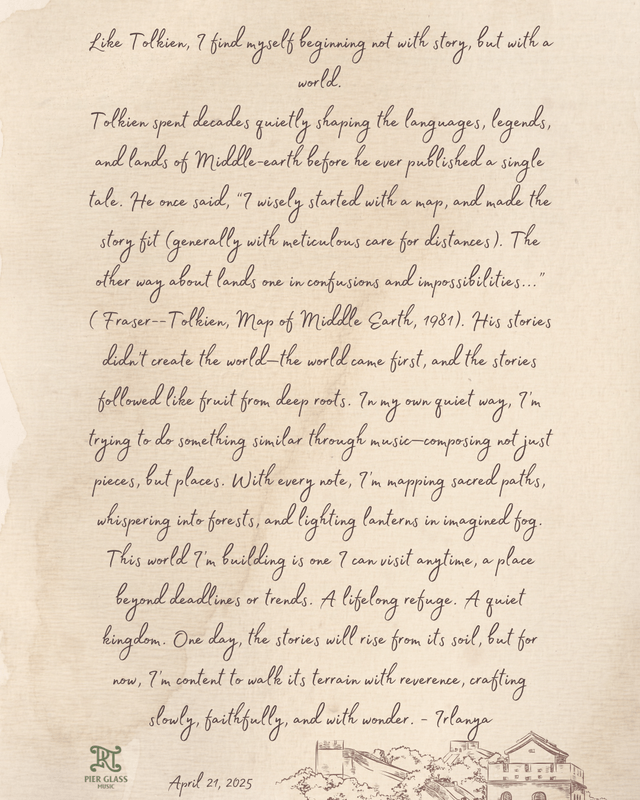 Like Tolkien, I find myself beginning not with story, but with a
world.
Tolkien spent decades quietly shaping the languages, legends,
and lands of Middle-earth before he ever published a single
tale. He once said, "I wisely started with a map, and made the
story fit (generally with meticulous care for distances). The
other way about lands one in confusions and impossibilities..."
( Fraser--Tolkien, Map of Middle Earth, 1981). His stories
didn't create the world—the world came first, and the stories
followed like fruit from deep roots. In my own quiet way, I'm
trying to do something similar through music—composing not just
pieces, but places. With every note, I'm mapping sacred paths,
whispering into forests, and lighting lanterns in imagined fog.
This world I'm building is one I can visit anytime, a place
beyond deadlines or trends. A lifelong refuge. A quiet
kingdom. One day, the stories will rise from its soil, but for
now, I'm content to walk its terrain with reverence, crafting
slowly, faithfully, and with wonder. - Irlanya
PIER GLASS
MUSIC
April 21, 2025